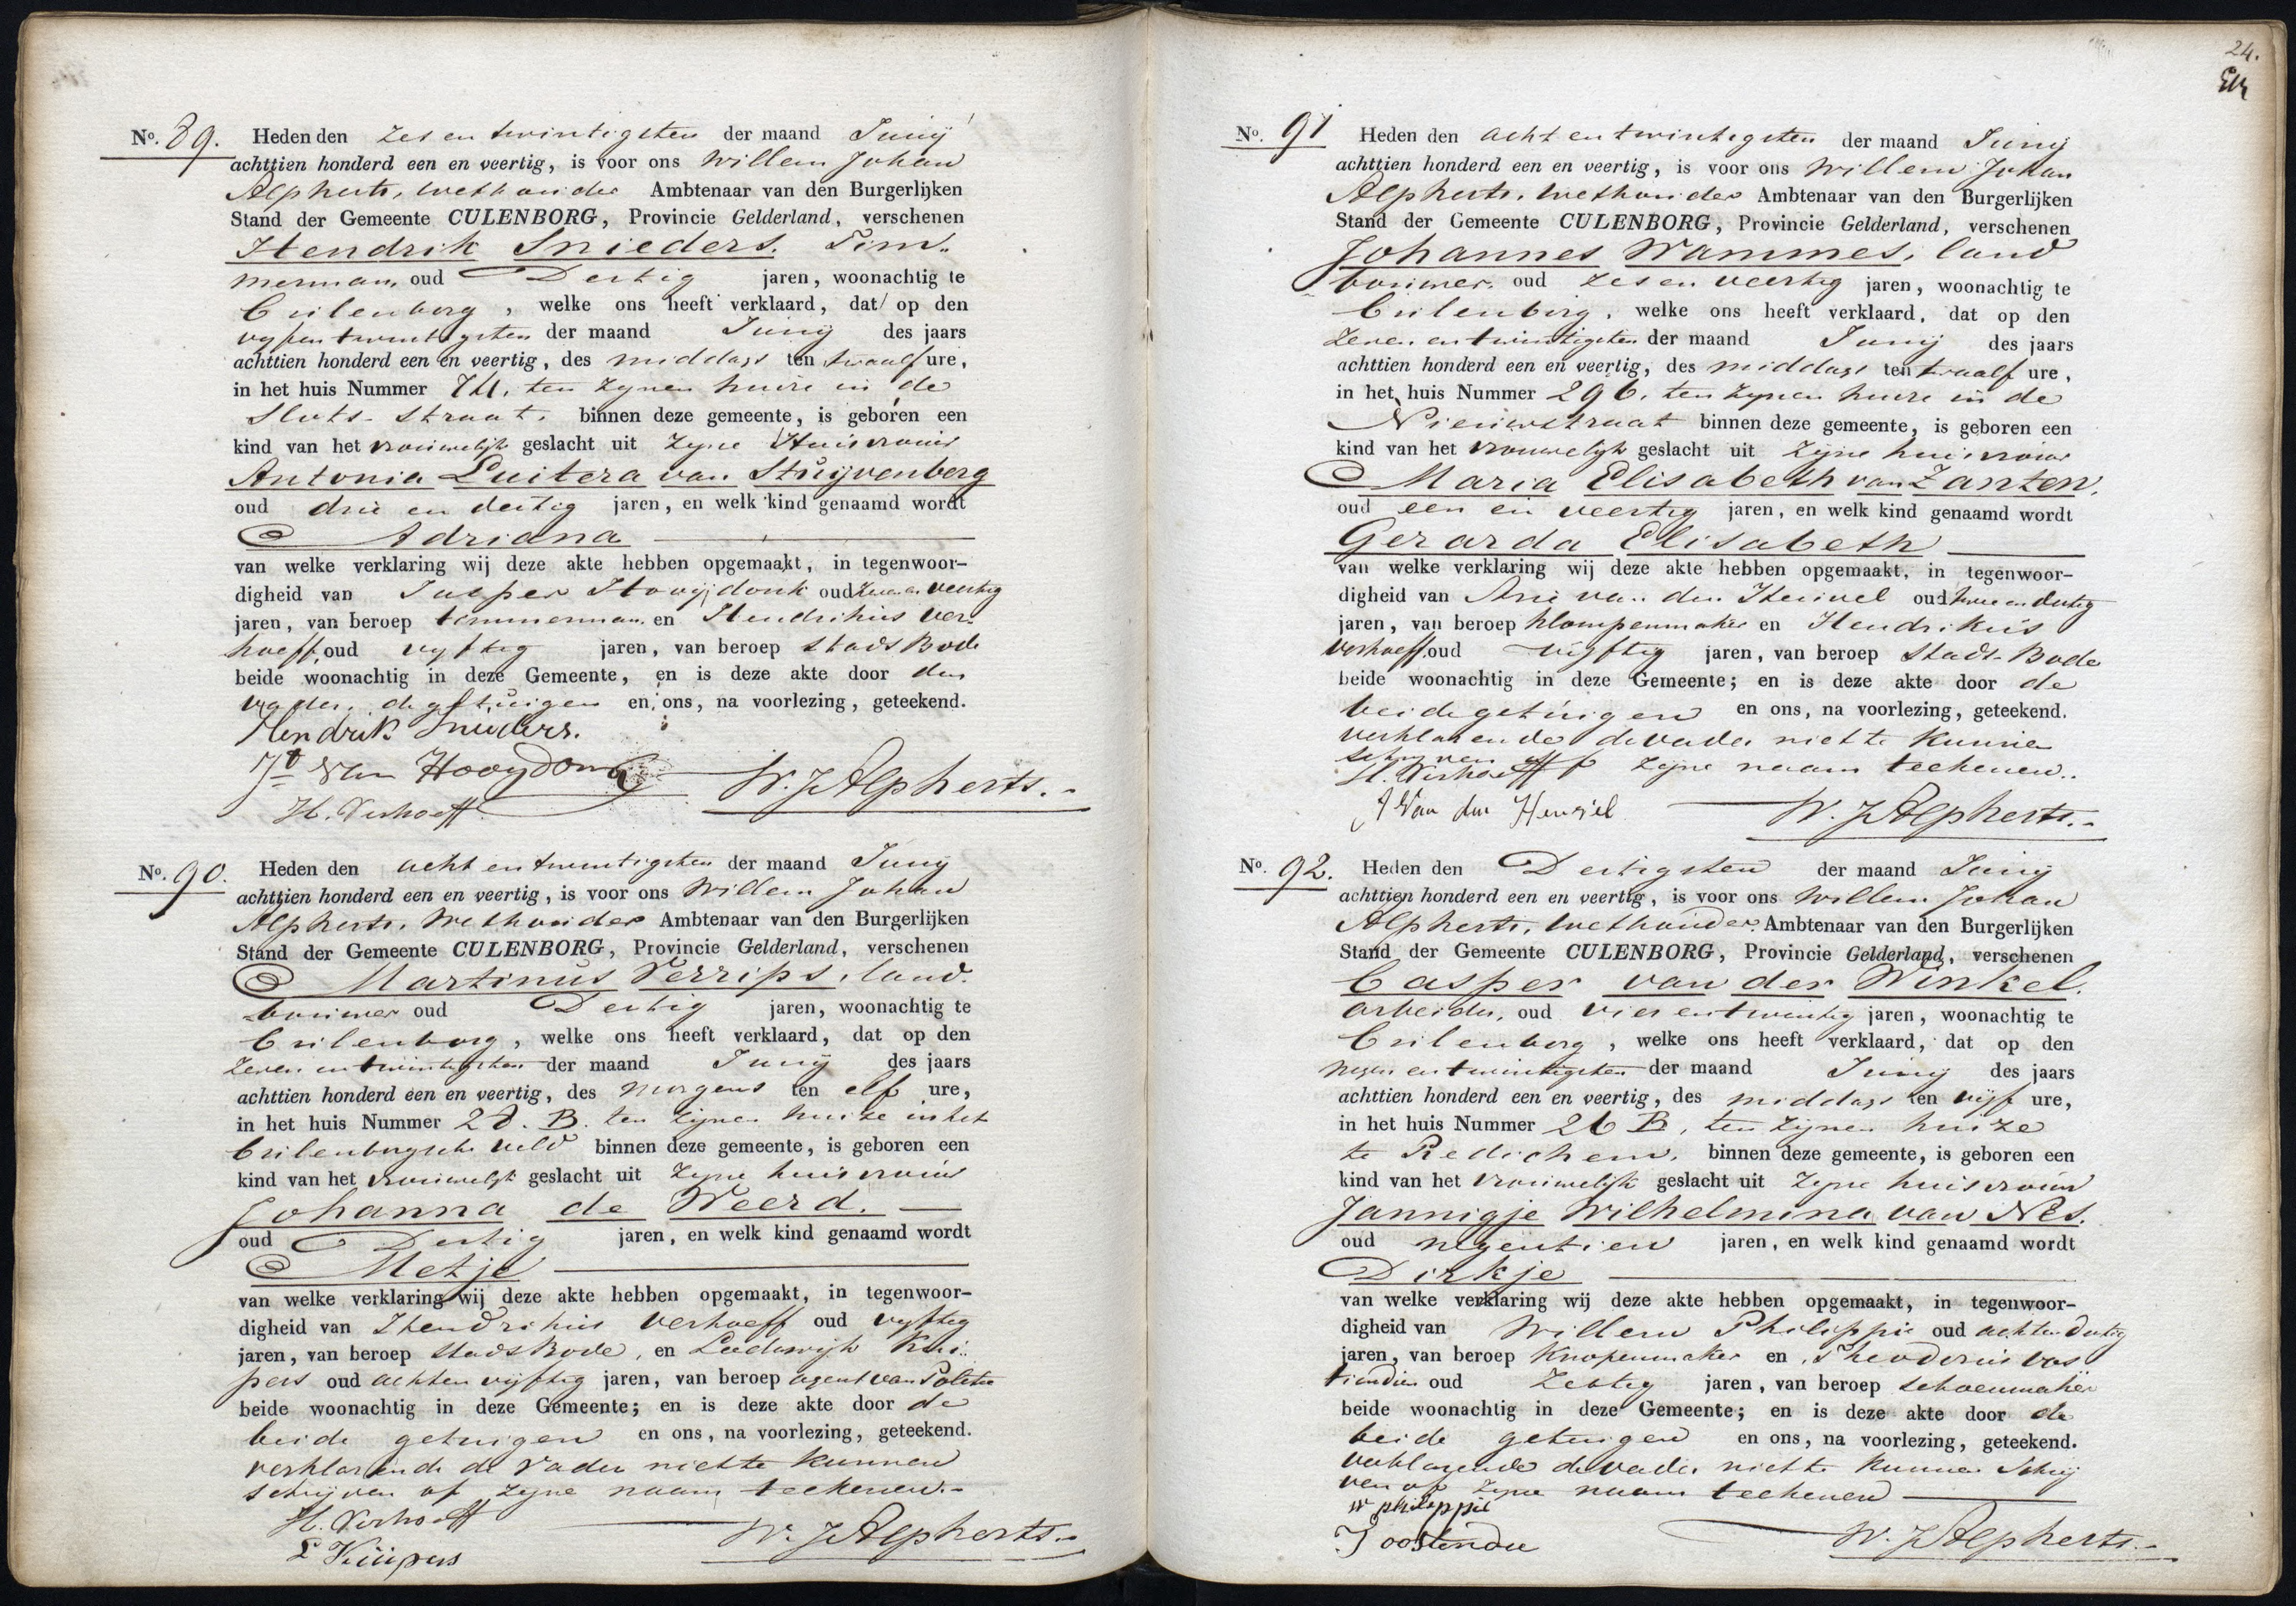 No. 89. Heden den zes en twintigsten der maand Junij
achttien honderd een en veertig, is voor ons Willem Johan
Alpherts, wethouder Ambtenaar van den Burgerlijken
Stand der Gemeente CULENBORG, Provincie Gelderland, verschenen
Hendrik Snieders. Tim-
merman, oud Dertig jaren, woonachtig te
Cuilenborg, welke ons heeft verklaard, dat op den
vyfentwintigsten der maand Junij des jaars
achttien honderd een en veertig, des middags ten twaalf ure,
in het huis Nummer ten zynen huize in de
Slots-straat, binnen deze gemeente, is geboren een
kind van het vrouwelyk geslacht uit zyne Huisvrouw
Antonia Luitera van Stuijvenberg
oud drie en dertig jaren, en welk kind genaamd wordt
Adriana
van welke verklaring wij deze akte hebben opgemaakt, in tegenwoor-
digheid van Jasper Hooijdonk oud zeven en veertig
jaren, van beroep timmerman en Hendrikus Ver-
hoeff, oud vyftig jaren, van beroep stads Bode
beide woonachtig in deze Gemeente, en is deze akte door den
vader, de getuigen en ons, na voorlezing, geteekend.
Hendrik Snieders.
Van Hooydonk
H. Verhoeff
W. J. Alpherts.
No. 90. Heden den acht en twintigsten der maand Junij
achttien honderd een en veertig, is voor ons Willem Johan
Alpherts, Wethouder Ambtenaar van den Burgerlijken
Stand der Gemeente CULENBORG, Provincie Gelderland, verschenen
Martinus Verrips, land-
bouwer oud Dertig jaren, woonachtig te
Cuilenborg, welke ons heeft verklaard, dat op den
zeven en twintigsten der maand Junij des jaars
achttien honderd een en veertig, des morgens ten elf ure,
in het huis Nummer 28. B. ten zijnen huize in het
Cuilenborgsche veld binnen deze gemeente, is geboren een
kind van het vrouwelyk geslacht uit zyne huisvrouw
Johanna de Weerd.
oud Dertig jaren, en welk kind genaamd wordt
Metje
van welke verklaring wij deze akte hebben opgemaakt, in tegenwoor-
digheid van Hendrikus Verhoeff oud vyftig
jaren, van beroep stads Bode, en Lodewijk Kui-
pers oud acht en vijftig jaren, van beroep agent van Politie
beide woonachtig in deze Gemeente; en is deze akte door de
beide getuigen en ons, na voorlezing, geteekend.
verklarende de vader niet te kunnen
schrijven of zyne naam teekenen.-
H. Verhoeff
L Kuijpers
W. J. Alpherts.
24.
No. 91 Heden den acht en twintigsten der maand Junij
achttien honderd een en veertig, is voor ons Willem Johan
Alpherts, wethouder Ambtenaar van den Burgerlijken
Stand der Gemeente CULENBORG, Provincie Gelderland, verschenen
Johannes Wammes, land
bouwer, oud zes en veertig jaren, woonachtig te
Cuilenborg, welke ons heeft verklaard, dat op den
zeven en twintigsten der maand Junij des jaars
achttien honderd een en veertig, des middags ten twaalf ure,
in het huis Nummer 296, ten zynen huize in de
Nieuwstraat binnen deze gemeente, is geboren een
kind van het vrouwelyk geslacht uit zyne huisvrouw
Maria Elisabeth van Zanten.
oud een en veertig jaren, en welk kind genaamd wordt
Gerarda Elisabeth
van welke verklaring wij deze akte hebben opgemaakt, in tegenwoor-
digheid van Arie van den Heuvel oud twee en dertig
jaren, van beroep klompenmaker en Hendrikus
Verhoeff. oud vijftig jaren, van beroep Stads-Bode
beide woonachtig in deze Gemeente; en is deze akte door de
beide getuigen en ons, na voorlezing, geteekend.
verklarende de vader niet te kunnen
schryven of zyne naam teekenen..
H. Verhoeff
A Van den Heuvel
W. J. Alpherts.-
No. 92. Heden den Dertigsten der maand Junij
achttien honderd een en veertig, is voor ons Willem Johan
Alpherts, wethouder Ambtenaar van den Burgerlijken
Stand der Gemeente CULENBORG, Provincie Gelderland, verschenen
Casper van der Winkel.
arbeider, oud vier en twintig jaren, woonachtig te
Cuilenborg, welke ons heeft verklaard, dat op den
negen en twintigsten der maand Junij des jaars
achttien honderd een en veertig, des middags ten vijf ure,
in het huis Nummer 26 B, ten zynen huize
te Redichem, binnen deze gemeente, is geboren een
kind van het vrouwelijk geslacht uit zyne huisvrouw
Jannigje Wilhelmina van Nes.
oud negentien jaren, en welk kind genaamd wordt
Dirkje
van welke verklaring wij deze akte hebben opgemaakt, in tegenwoor-
digheid van Willem Philippie oud acht en dertig
jaren, van beroep Knopenmaker en Theodorus Oos
tindien oud Zestig jaren, van beroep schoenmaker
beide woonachtig in deze Gemeente; en is deze akte door de
beide getuigen en ons, na voorlezing, geteekend.
verklarende de vader niet te kunnen schrij
ven of zyne naam teekenen
W philippie
T oostindie
W. J. Alpherts.-